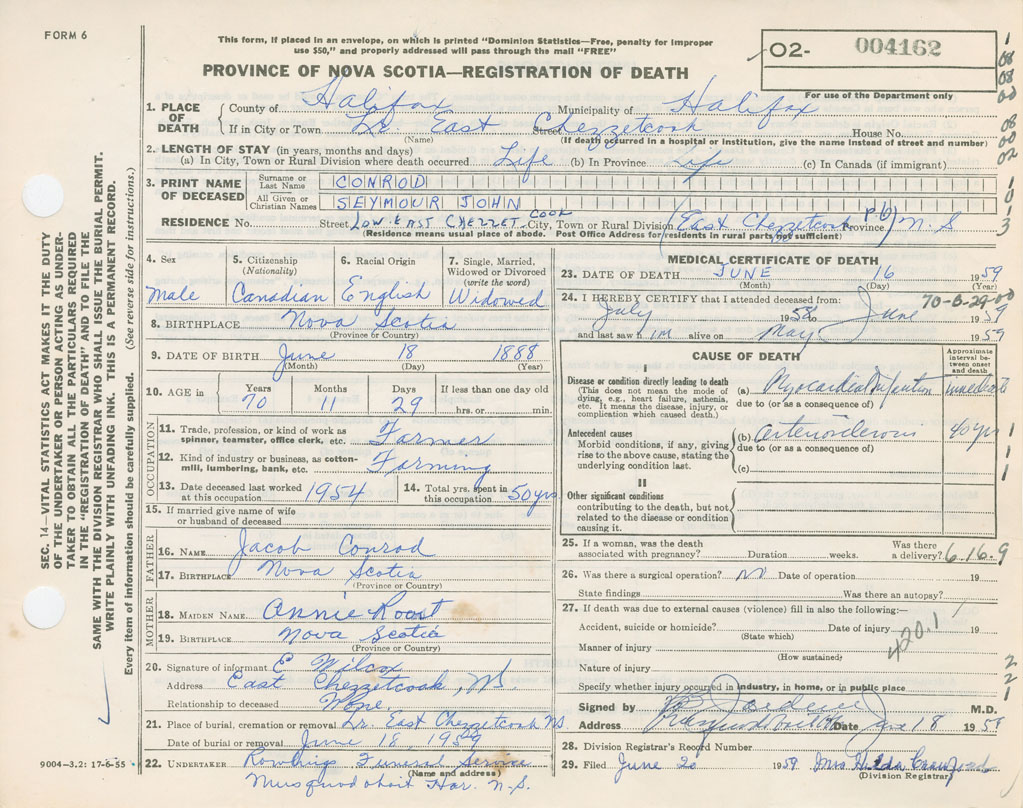 FORM 6
This form, if placed in an envelope, on which is printed "Dominion Statistics—Free, penalty for improper
use $50," and properly addressed will pass through the mail "FREE"
PROVINCE OF NOVA SCOTIA—REGISTRATION OF DEATH
02- 004162
For use of the Department only
1. PLACE OF DEATH
County of Halifax Municipality of Halifax
If in City or Town Lr. East Chezzetcook Street House No.
(Name) (If death occurred in a hospital or institution, give the name instead of street and number)
2. LENGTH OF STAY (in years, months and days)
(a) In City, Town or Rural Division where death occurred Life (b) In Province Life (c) In Canada (if immigrant)
3. PRINT NAME OF DECEASED
Surname or Last Name CONROD
All Given or Christian Names SEYMOUR JOHN
RESIDENCE No. Street LOW. EAST CHEZZETCOOK City, Town or Rural Division (East Chezzetcook P.O) Province N.S
(Residence means usual place of abode. Post Office Address for residents in rural parts not sufficient)
4. Sex Male
5. Citizenship (Nationality) Canadian
6. Racial Origin English
7. Single, Married, Widowed or Divorced (write the word) Widowed
8. BIRTHPLACE Nova Scotia
(Province or Country)
9. DATE OF BIRTH June 18 1888
(Month) (Day) (Year)
10. AGE in Years 70 Months 11 Days 29 If less than one day old hrs. or min.
OCCUPATION
11. Trade, profession, or kind of work as spinner, teamster, office clerk, etc. Farmer
12. Kind of industry or business, as cotton-mill, lumbering, bank, etc. Farming
13. Date deceased last worked at this occupation 1954
14. Total yrs. spent in this occupation 50 yrs
15. If married give name of wife or husband of deceased
FATHER
16. NAME Jacob Conrod
17. BIRTHPLACE Nova Scotia
(Province or Country)
MOTHER
18. MAIDEN NAME Annie Roast
19. BIRTHPLACE Nova Scotia
(Province or Country)
20. Signature of informant E Wilcox
Address East Chezzetcook, NS.
Relationship to deceased None
21. Place of burial, cremation or removal Lr. East Chezzetcook NS
Date of burial or removal June 18, 1959
22. UNDERTAKER Rowlings Funeral Service
(Name and address)
Musquodoboit Har. N.S.
MEDICAL CERTIFICATE OF DEATH
23. DATE OF DEATH JUNE 16 1959
(Month) (Day) (Year)
24. I HEREBY CERTIFY that I attended deceased from: 70-6-29-00
July 1958 to June 1959
and last saw him alive on May 1959
CAUSE OF DEATH
Approximate interval between onset and death
I
Disease or condition directly leading to death
(This does not mean the mode of dying, e.g., heart failure, asthenia, etc. It means the disease, injury, or complication which caused death.)
(a) Myocardial Infarction immediate
due to (or as a consequence of)
Antecedent causes
Morbid conditions, if any, giving rise to the above cause, stating the underlying condition last.
(b) arteriosclerosis 40 yrs
due to (or as a consequence of)
(c)
II
Other significant conditions
contributing to the death, but not related to the disease or condition causing it.
25. If a woman, was the death associated with pregnancy? Duration weeks. Was there a delivery? 6.16.9
26. Was there a surgical operation? No Date of operation 19
State findings Was there an autopsy?
27. If death was due to external causes (violence) fill in also the following:—
Accident, suicide or homicide? Date of injury 19
(State which)
420.1
Manner of injury
(How sustained)
Nature of injury
Specify whether injury occurred in industry, in home, or in public place
Signed by M.D.
Address Date June 18 1959
28. Division Registrar's Record Number
29. Filed June 20 1959 Mrs Hilda Crawford
(Division Registrar)
SEC. 14—VITAL STATISTICS ACT MAKES IT THE DUTY
OF THE UNDERTAKER OR PERSON ACTING AS UNDER-
TAKER TO OBTAIN ALL THE PARTICULARS REQUIRED
IN THE "REGISTRATION OF DEATH" AND TO FILE THE
SAME WITH THE DIVISION REGISTRAR WHO SHALL ISSUE THE BURIAL PERMIT.
WRITE PLAINLY WITH UNFADING INK. THIS IS A PERMANENT RECORD.
Every item of information should be carefully supplied. (See reverse side for instructions.)
9004—3.2: 17-6-55